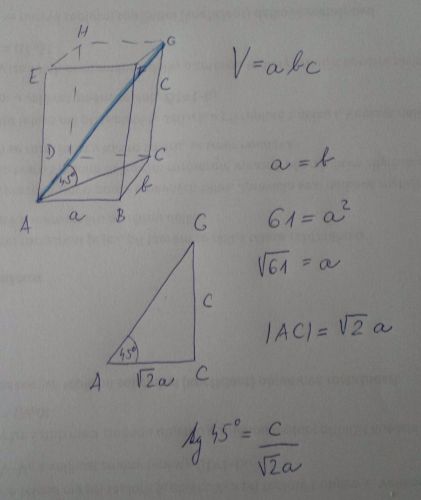 H
G
E
F
C
D
C
45°
b
A
a
B
V = abc
a = b
61 = a²
√61 = a
|AC| = √2 a
G
C
45°
A
√2a
C
tg 45° = C / √2a